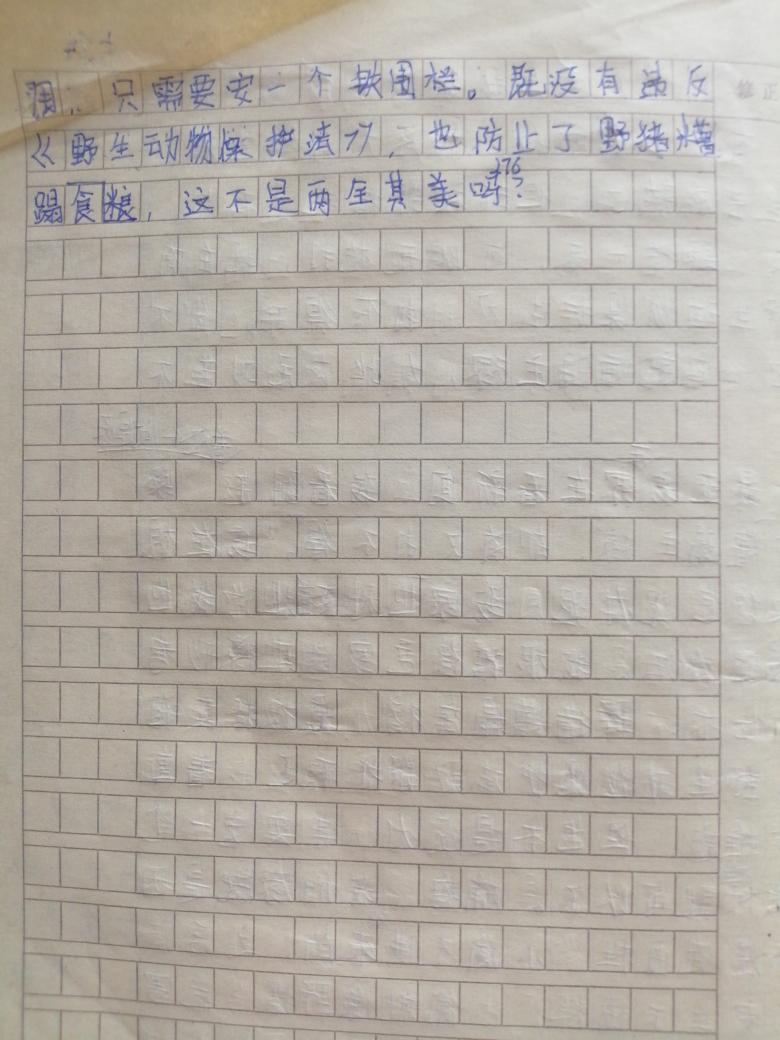 只需要安一个铁围栏。既没有违反
《野生动物保护法》，也防止了野猪糟
蹋食粮，这不是两全其美吗？
176
修正